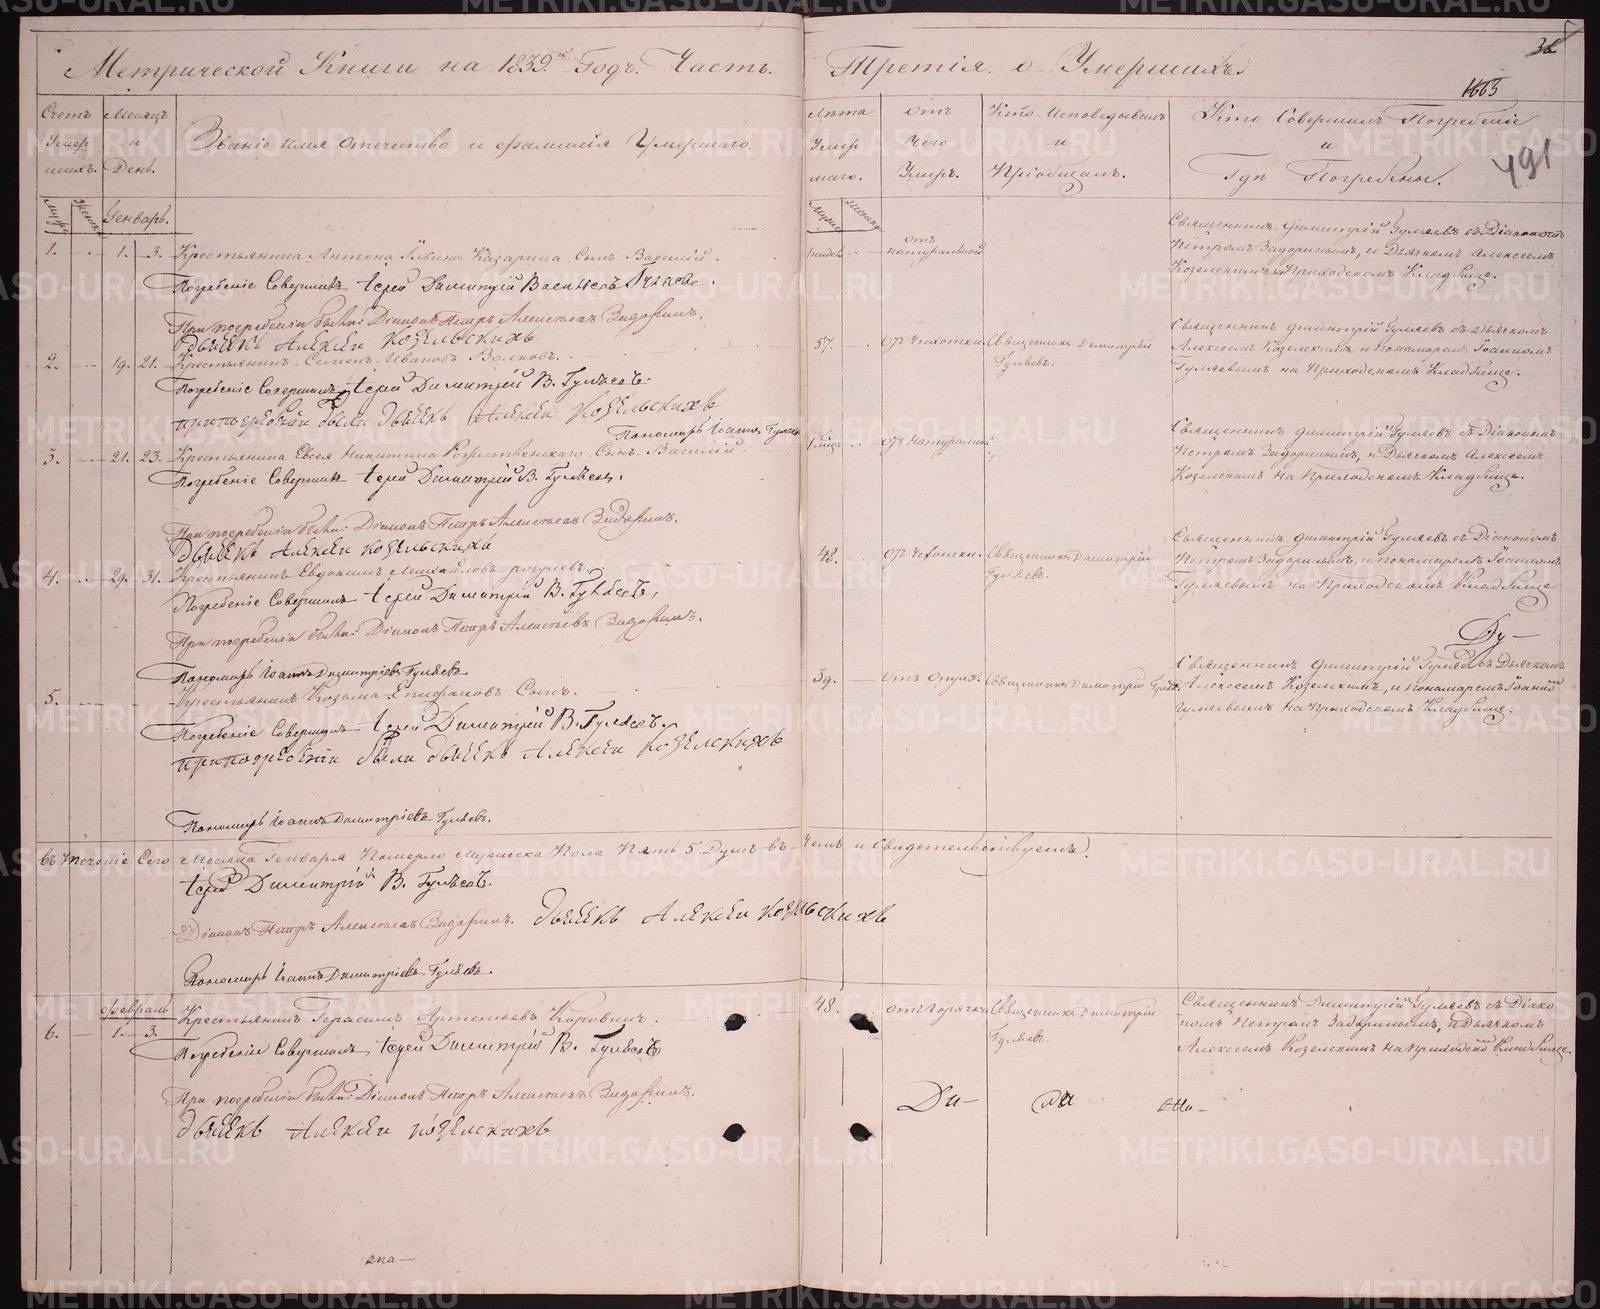 Метрической Книги на 1839й Годъ. Часть.
Третія о Умершихъ.
1663
491
Счетъ Умер шихъ.
Месяцъ и День.
Званіе имя отечество и фамилія Умершаго.
Лѣта Умер шаго.
отъ Чего Умеръ.
Кто Исповедывалъ и Пріобщалъ.
Кто Совершалъ Погребеніе и Гдѣ Погребены.
Генварь.
1. 1. 3. Крестьянина Антона Казарина Сынъ Василій.
отъ натуральной
Священникъ Димитрій Гуляевъ съ Діакономъ
Петромъ Задоринымъ, и Дьячкомъ Алексеемъ
на Приходскомъ Кладбище.
Погребеніе Совершилъ Іерей Димитрій Васильевъ Гуляевъ.
При погребеніи были: Діаконъ Петръ Алексѣевъ Задоринъ.
дьячекъ Алексеи Козельскихъ
2. 19. 21. Крестьянинъ Семенъ Ивановъ Волковъ.
57. отъ Чехотки. Священникъ Димитрій Гуляевъ.
Священникъ Димитрій Гуляевъ съ Дьячкомъ
Алексеемъ Козелскимъ и пономаремъ Іоанномъ
Гуляевымъ на Приходскомъ Кладбище.
Погребеніе Совершилъ Іерей Димитрій В. Гуляевъ.
припогребеніи были дьячекъ Алексеи Козельскихъ
Пономарь Іоаннъ Гуляевъ
3. 21. 23. Крестьянина Евсея Никитина Рожественскаго Сынъ Василій.
отъ Натуралной
Священникъ Димитрій Гуляевъ съ Діакономъ
Петромъ Задоринымъ, и Дьячкомъ Алексеемъ
Козелскимъ на Приходскомъ Кладбище.
Погребеніе Совершилъ Іерей Димитрій В. Гуляевъ.
При погребеніи были: Діаконъ Петръ Алексѣевъ Задоринъ.
дьячекъ Алексеи козельскихъ
4. 29. 31. Крестьянинъ Евдокимъ Михайловъ
48. отъ Чехотки. Священникъ Димитрій Гуляевъ.
Священникъ Димитрій Гуляевъ съ Діакономъ
Петромъ Задоринымъ, и пономаремъ Іоанномъ
Гуляевымъ на Приходскомъ Кладбище
Погребеніе Совершилъ Іерей Димитрій В. Гуляевъ,
При погребеніи были: Діаконъ Петръ Алексѣевъ Задоринъ.
Пономарь Іоаннъ Димитріевъ Гуляевъ
Ду—
5. Крестьянинъ Козьма Епифановъ Сынъ.
39. Священникъ Димитрій
Священникъ Димитрій Гуляевъ съ Дьячкомъ
Алексеемъ Козелскимъ, и пономаремъ Іоанномъ
Гуляевымъ на Приходскомъ Кладбище.
Погребеніе Совершилъ Іерей Димитрій В. Гуляевъ.
припогребеніи были дьячекъ Алексеи Козелскихъ
Пономарь Іоаннъ Димитріевъ Гуляевъ.
Въ теченіе Сего Месяца Генваря Померло Мужеска Пола Пять 5. Душъ въ Чемъ и Свидетельствуемъ.
Іерей Димитрій В. Гуляевъ.
Діаконъ Петръ Алексѣевъ Задоринъ. дьячекъ Алексеи козельскихъ
Пономарь Іоаннъ Димитріевъ Гуляевъ.
Февраль
6. 1. 3. Крестьянинъ Герасимъ Артемьевъ Коровинъ.
48. отъ Горячки Священникъ Димитрій Гуляевъ.
Священникъ Димитрій Гуляевъ съ Діако
номъ Петромъ Задоринымъ, и Дьячкомъ
Алексеемъ Козелскимъ на Приходскомъ Кладбище.
Погребеніе Совершилъ Іерей Димитрій В. Гуляевъ
При погребеніи были: Діаконъ Петръ Алексѣевъ Задоринъ.
дьячекъ Алексеи козелскихъ
METRIKI.GASO-URAL.RU